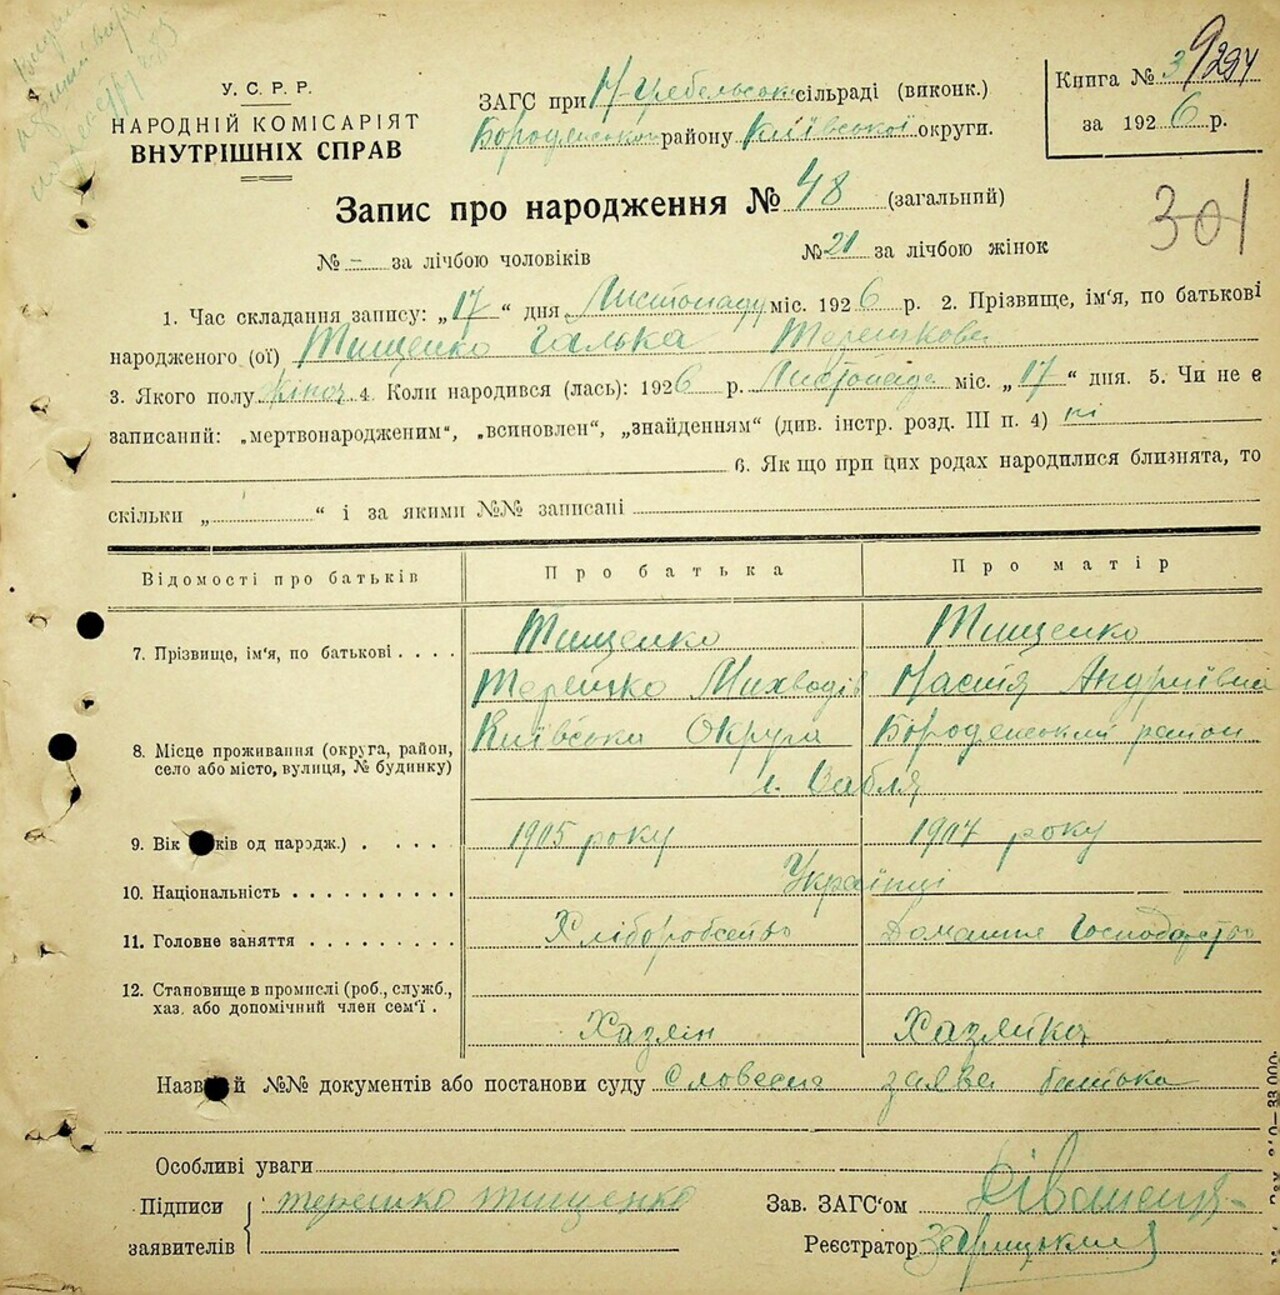 У. С. Р. Р.
НАРОДНІЙ КОМІСАРІЯТ
ВНУТРІШНІХ СПРАВ
ЗАГС при сільраді (виконк.)
району Київської округи.
Книга №
за 1926 р.
Запис про народження № 48 (загальний)
301
№ – за лічбою чоловіків № 21 за лічбою жінок
1. Час складання запису: „17“ дня Листопаду міс. 1926 р. 2. Прізвище, ім'я, по батькові
народженого (ої) Тищенко Галька Терешкова
3. Якого полу жіноч 4. Коли народився (лась): 1926 р. Листопада міс. „17“ дня. 5. Чи не є
записаний: „мертвонародженим“, „всиновлен“, „знайденням“ (див. інстр. розд. III п. 4) ні
6. Як що при цих родах народилися близнята, то
скільки „ “ і за якими №№ записані
Відомості про батьків Про батька Про матір
7. Прізвище, ім'я, по батькові . . . . Тищенко Тищенко
Терешко Настя Андріївна
8. Місце проживання (округа, район, Київська Округа район
село або місто, вулиця, № будинку) Вабля
9. Вік ків од народж.) . . . . 1905 року 1907 року
10. Національність . . . . . . . . . . Українці
11. Головне заняття . . . . . . . . . Хліборобство Домашне Господарство
12. Становище в промислі (роб., служб.,
хаз. або допомічний член сем'ї . Хазяїн Хазяйка
Назв й №№ документів або постанови суду Словесна заява батька
Особливі уваги
Підписи терешко тищенко Зав. ЗАГС'ом
заявителів Реєстратор